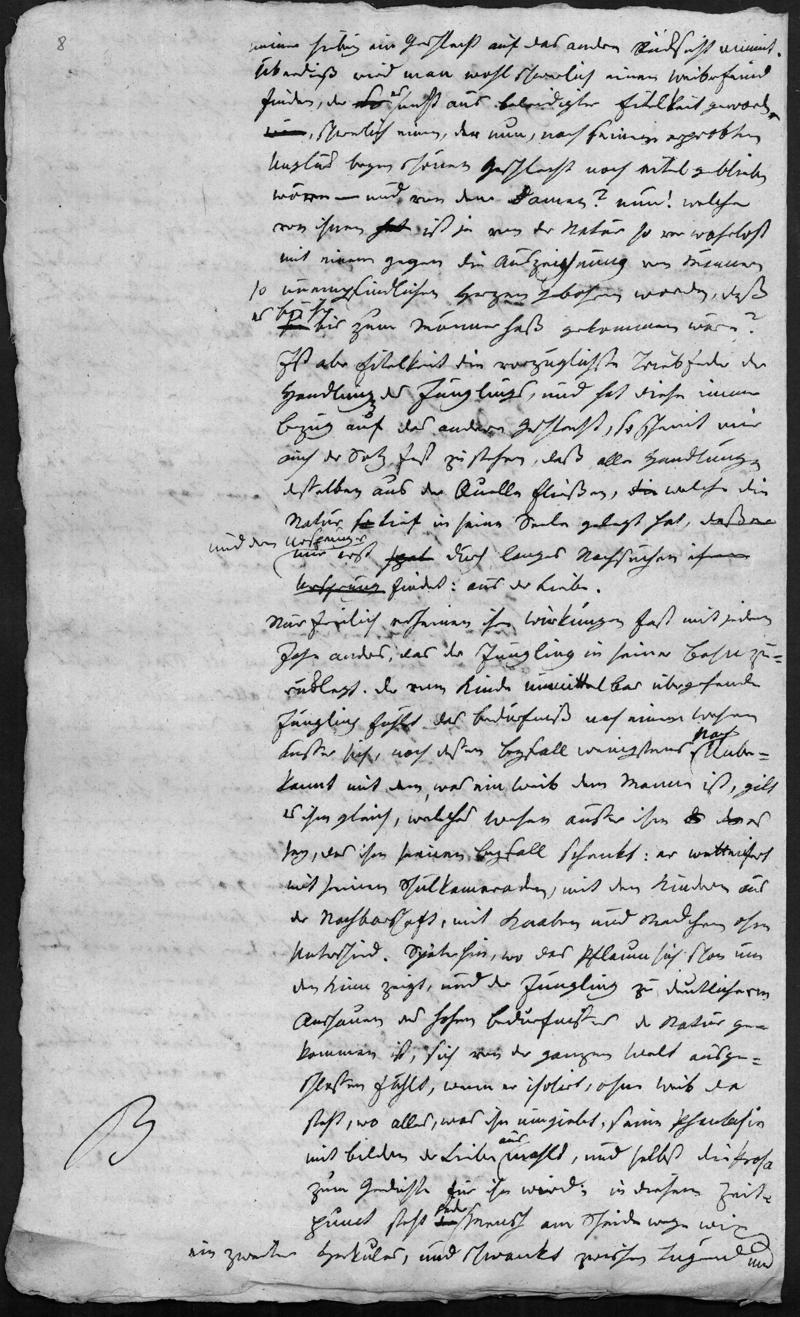 8
immer hübsch ein Geschlecht auf das andere Rücksicht nimmt.
Überdieß wird man wohl schwerlich einen Weiberfeind
finden, der es nicht aus beleidigter Eitelkeit geworden
, schwerlich einen, der nun, nach seinem erprobten
Unglück beym schönen Geschlecht noch eitel geblieben
wäre — und von den Damen? nun! welche
von ihnen ist je von der Natur so verwahrlost
mit einem gegen die Auszeichnung von Männern
so unempfindlichen Herzen geboren worden, daß
es bis zum Männerhaß gekommen wäre?
Ist aber Eitelkeit die vorzüglichste Triebfeder der
Handlung des Jünglings, und hat diese immer
Bezug auf das andere Geschlecht, so scheint mir
auch der Satz fest zu stehen, daß alle Handlungen
desselben aus der Quelle fließen, welche die
Natur tief in seine Seele gelegt hat,
und deren Ursprung
nur erst durch langes Nachsuchen
findet: aus der Liebe.
Nur freilich erscheinen ihre Wirkungen fast mit jedem
Jahr anders, das der Jüngling in seiner Bahn zu-
rücklegt. Der vom Kinde unmittelbar übergehende
Jüngling fühlt das Bedürfniß nach einem Wesen
ausser sich, nach dessen Beyfall wenigstens; noch unbe-
kannt mit dem, was ein Weib dem Manne ist, gilt
es ihm gleich, welches Wesen außer ihm es
sey, das ihm seinen Beyfall schenkt: er wetteifert
mit seinen Schulkameraden, mit den Kindern aus
der Nachbarschaft, mit Knaben und Mädchen ohne
Unterschied. Späterhin, wo das Pflaum sich schon um
den Kinn zeigt, und der Jüngling zu deutlicherm
Anschauen des hohen Bedürfnisses der Natur ge-
kommen ist, sich von der ganzen Welt ausge-
schlossen fühlt, wenn er isolirt, ohne Weib da
steht, wo alles, was ihn umgiebt, seine Phantasie
mit Bildern der Liebe ausmahlt, und selbst die Prosa
zum Gedichte für ihn wird: in diesem Zeit-
punct steht jeder Mensch am Scheidewege wie
ein zweiter Herkules, und schwankt zwischen Tugend und
B